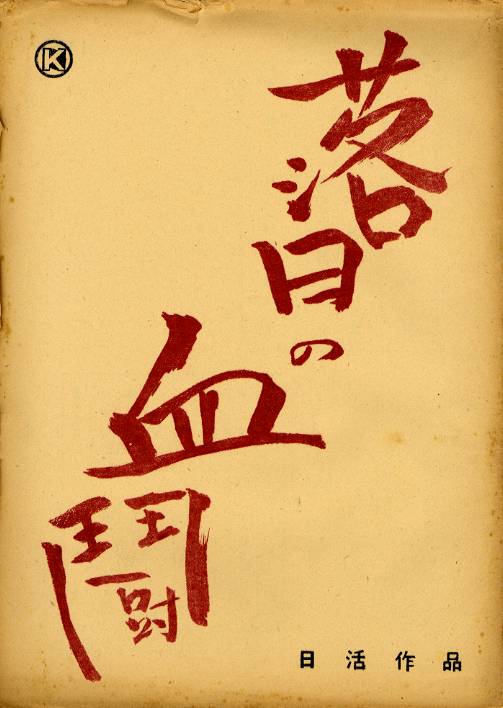 K
落日の
血鬪
日活作品